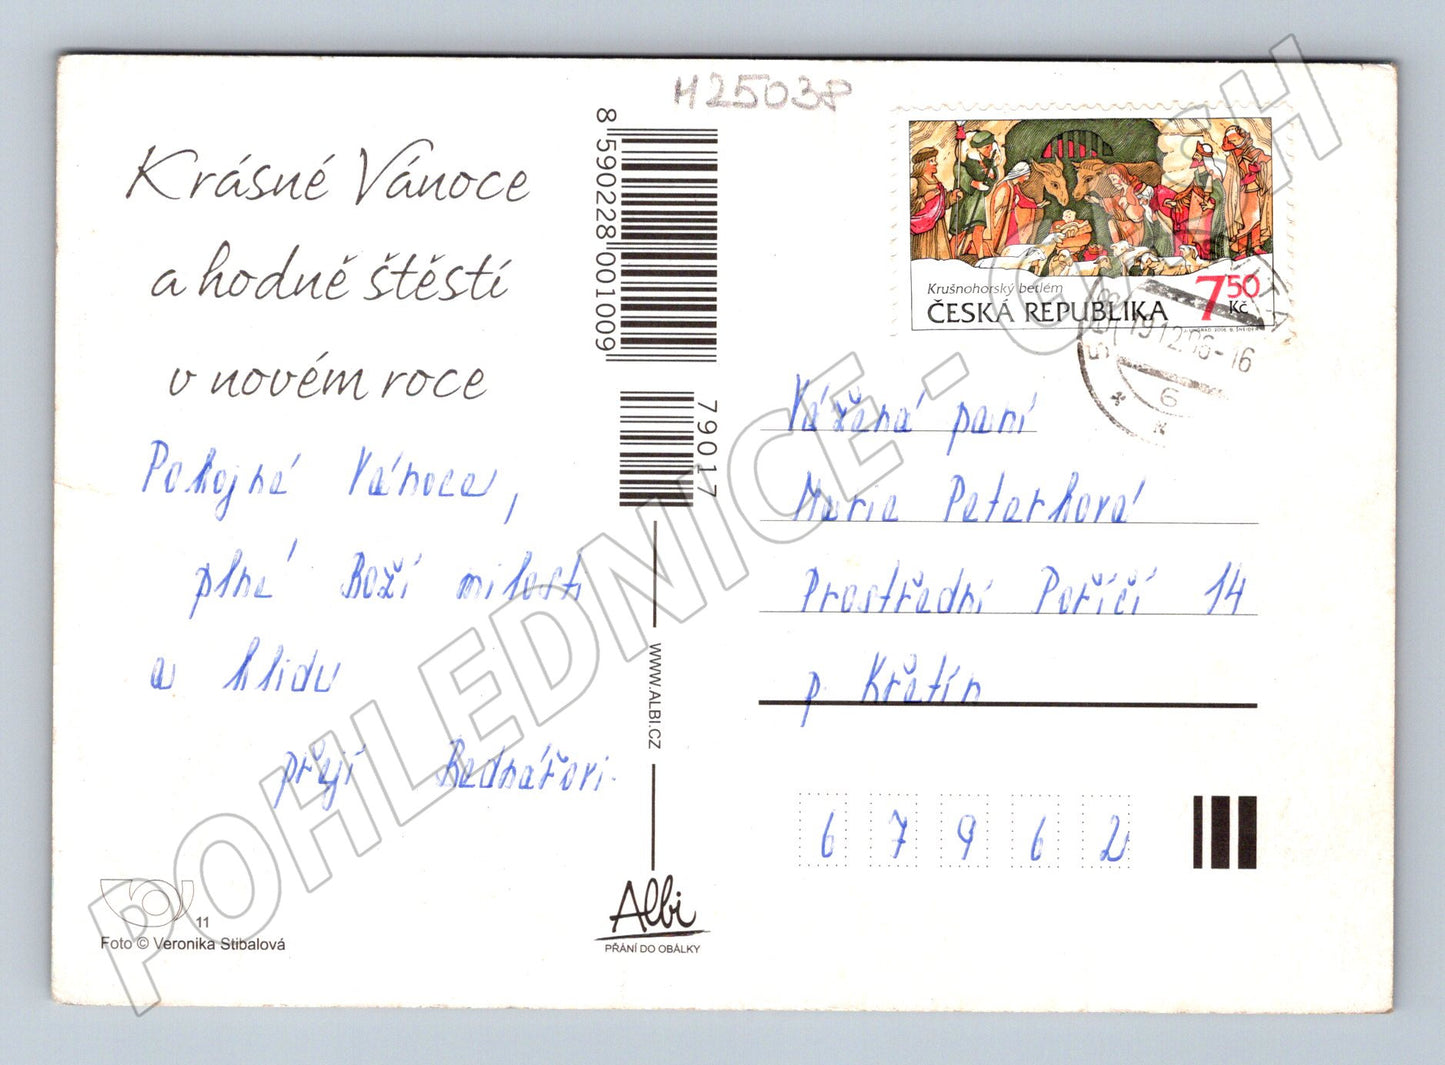 M25038
Krásné Vánoce
a hodně štěstí
v novém roce
Pokojné Vánoce,
plné Boží milosti
a klidu
přejí Bednářovi.
11
Foto © Veronika Stibalová
8 590228 001009
79017
WWW.ALBI.CZ
Albi
PŘÁNÍ DO OBÁLKY
Krušnohorský betlém
7 50 Kč
ČESKÁ REPUBLIKA
19.12.06-16
6
Vážená paní
Marie Peterková
Prostřední Poříčí 14
p. Křetín
67962
POHLEDNICE - CASH